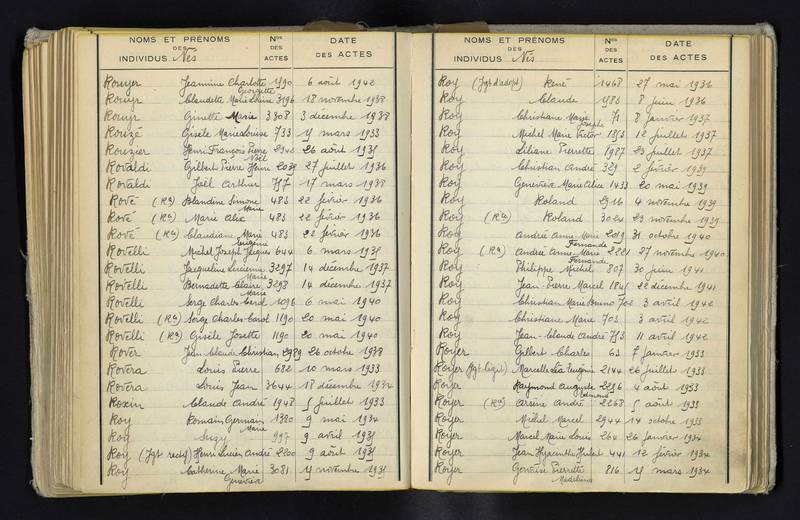 NOMS ET PRÉNOMS
DES
INDIVIDUS Nés
Nos
DES
ACTES
DATE
DES ACTES
Rouyer Jeannine Charlotte Georgette 1490 6 août 1942
Rouyr Claudette Marie Louise 3196 18 novembre 1938
Rouyr Ginette Marie 3308 3 décembre 1938
Rouzé Gisèle Marie Louise 733 15 mars 1933
Rouzier Henri François Pierre Noël 2940 26 août 1935
Rovaldi Gilbert Pierre Henri 2039 27 juillet 1936
Rovaldi Joël Arthur 757 17 mars 1938
Rové (Ron) Blandine Simone Marie 483 22 février 1936
Rové (Ron) Marie Alice 483 22 février 1936
Rové (Ron) Claudiane Marie Eugénie 483 22 février 1936
Rovelli Michel Joseph Jacques 644 6 mars 1935
Rovelli Jacqueline Lucienne Marie 3297 14 décembre 1937
Rovelli Bernadette Claire Marie 3298 14 décembre 1937
Rovelli Serge Charles Carol 1096 6 mai 1940
Rovelli (Ron) Serge Charles Carol 1190 20 mai 1940
Rovelli (Ron) Gisèle Josette 1190 20 mai 1940
Rover Jean Claude Christian 2989 26 octobre 1938
Rovera Louis Pierre 682 10 mars 1933
Rovera Louis Jean 3644 18 décembre 1934
Roxin Claude André 1948 5 juillet 1933
Roy Romain Germain Marie 1320 9 mai 1934
Roy Suzy 997 9 avril 1935
Roy (Jgt rectif) Henri Lucien André 2200 9 août 1935
Roy Catherine Marie Geneviève 3081 15 novembre 1935
NOMS ET PRÉNOMS
DES
INDIVIDUS Nés
Nos
DES
ACTES
DATE
DES ACTES
Roy (Jgt d'adopt) René 1468 27 mai 1936
Roy Claude 1583 8 juin 1936
Roy Christiane Marie Josèphe 71 8 janvier 1937
Roy Michel Marie Victor 1853 12 juillet 1937
Roy Liliane Pierrette 1987 23 juillet 1937
Roy Christian André 329 2 février 1939
Roy Geneviève Marie Alice 1433 20 mai 1939
Roy Roland 2916 4 novembre 1939
Roy (Ron) Roland 3024 23 novembre 1939
Roy Andrée Anne Marie Fernande 2019 31 octobre 1940
Roy (Ron) Andrée Anne Marie Fernande 2221 27 novembre 1940
Roy Philippe Michel 807 30 juin 1941
Roy Jean-Pierre Marcel 1845 22 décembre 1941
Roy Christian Marie Bruno 702 3 avril 1942
Roy Christiane Marie 703 3 avril 1942
Roy Jean-Claude André 753 11 avril 1942
Royer Gilbert Charles 63 7 janvier 1933
Royer (Jgt légit) Marcelle Léa Eugénie 2144 26 juillet 1933
Royer Raymond Auguste Edmond 2236 4 août 1933
Royer (Ron) Arsène André 2268 5 août 1933
Royer Michel Marcel 2944 14 octobre 1933
Royer Marcel Marie Louis 264 26 janvier 1934
Royer Jean Hyacinthe Hubert 441 12 février 1934
Royer Gervaise Pierrette Madeleine 816 15 mars 1934